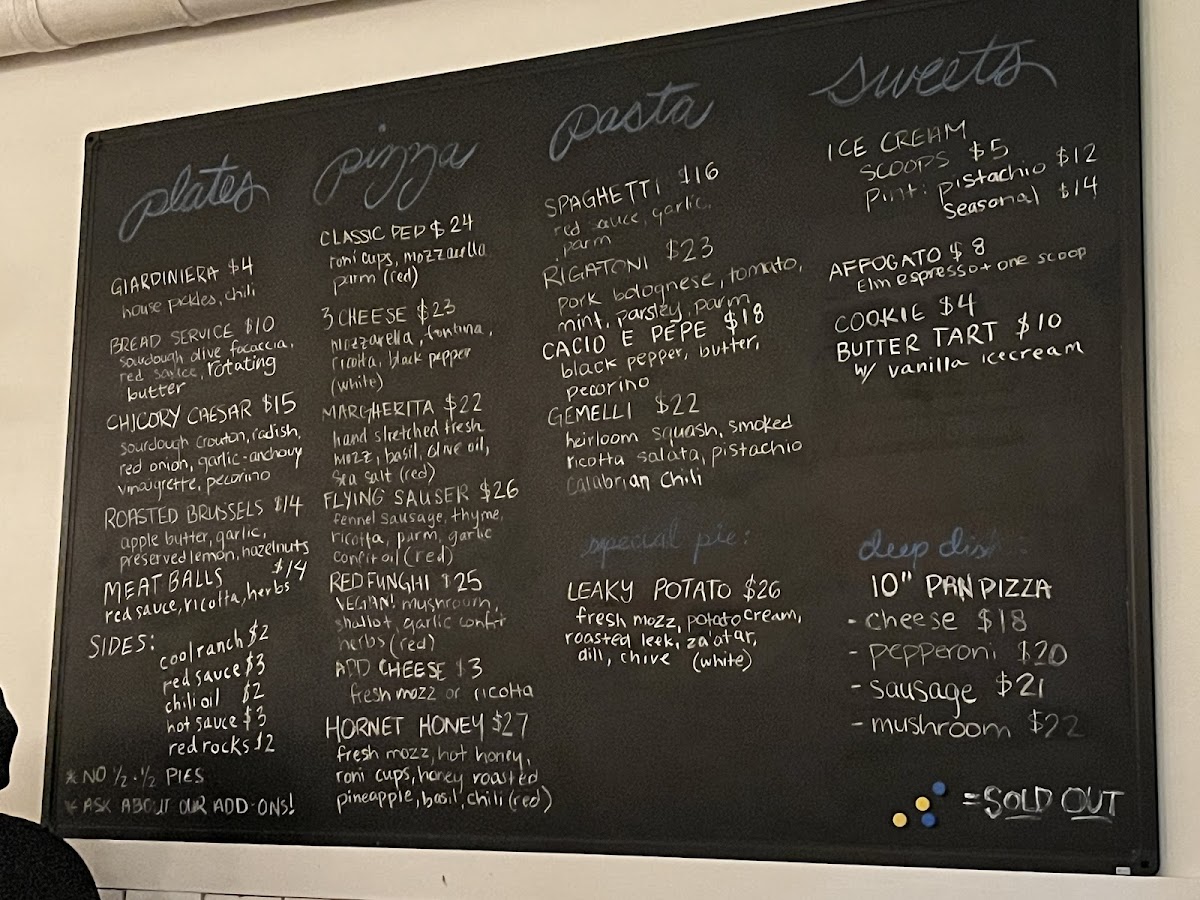 plates
GIARDINIERA $4
house pickles, chili
BREAD SERVICE $10
sourdough olive focaccia,
red sauce, rotating
butter
CHICORY CAESAR $15
sourdough crouton, radish,
red onion, garlic-anchovy
vinaigrette, pecorino
ROASTED BRUSSELS $14
apple butter, garlic,
preserved lemon, hazelnuts
MEATBALLS $14
red sauce, ricotta, herbs
SIDES:
cool ranch $2
red sauce $3
chili oil $2
hot sauce $3
red rocks $2
* NO ½-½ PIES
* ASK ABOUT OUR ADD-ONS!
pizza
CLASSIC PEP $24
roni cups, mozzarella
parm (red)
3 CHEESE $23
mozzarella, fontina,
ricotta, black pepper
(white)
MARGHERITA $22
hand stretched fresh
mozz, basil, olive oil,
sea salt (red)
FLYING SAUSER $26
fennel sausage, thyme,
ricotta, parm, garlic
confit oil (red)
RED FUNGHI $25
VEGAN! mushroom,
shallot, garlic confit
herbs (red)
ADD CHEESE $3
fresh mozz or ricotta
HORNET HONEY $27
fresh mozz, hot honey,
roni cups, honey roasted
pineapple, basil, chili (red)
pasta
SPAGHETTI $16
red sauce, garlic,
parm
RIGATONI $23
pork bolognese, tomato,
mint, parsley, parm
CACIO E PEPE $18
black pepper, butter,
pecorino
GEMELLI $22
heirloom squash, smoked
ricotta salata, pistachio
calabrian chili
special pie:
LEAKY POTATO $26
fresh mozz, potato cream,
roasted leek, za'atar,
dill, chive (white)
sweets
ICE CREAM
SCOOPS $5
Pint: pistachio $12
seasonal $14
AFFOGATO $8
Elm espresso + one scoop
COOKIE $4
BUTTER TART $10
w/ vanilla icecream
deep dish:
10" PAN PIZZA
- cheese $18
- pepperoni $20
- sausage $21
- mushroom $22
= SOLD OUT